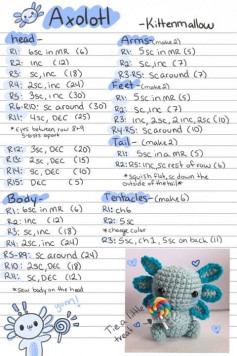 Axolotl
-Kittenmallow
head-
R1: 6sc in MR (6)
R2: inc (12)
R3: sc, inc (18)
R4: 2sc, inc (24)
R5: 3sc, inc (30)
R6-R10: sc around (30)
R11: 4sc, DEC (25)
*eyes between row 8+9
5 sts apart
R12: 3sc, DEC (20)
R13: 2sc, DEC (15)
R14: sc, DEC (10)
R15: DEC (5)
Body-
R1: 6sc in MR (6)
R2: inc (12)
R3: sc, inc (18)
R4: 2sc, inc (24)
R5-R9: sc around (24)
R10: 2sc, DEC (18)
R11: sc, DEC (12)
*sew body on the head
yum!
Arms-(make 2)
R1: 5sc in MR (5)
R2: sc, inc (7)
R3-R5: sc around (7)
Feet-(make 2)
R1: 5sc in MR (5)
R2: sc, inc (7)
R3: inc, 2sc, 2inc, 2sc (10)
R4-R5: sc around (10)
Tail-(make 2)
R1: 5sc in a MR (5)
R2-R5: inc, sc rest of row (6)
*squish flat, sc down the
outside of the tail*
Tentacles-(make 6)
R1: ch6
R2: 5sc
*change color
R3: 5sc, ch1, 5sc on back (11)
Tie a little
treat